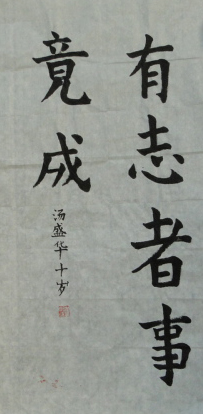 有志者事
竟成
汤盛华十岁